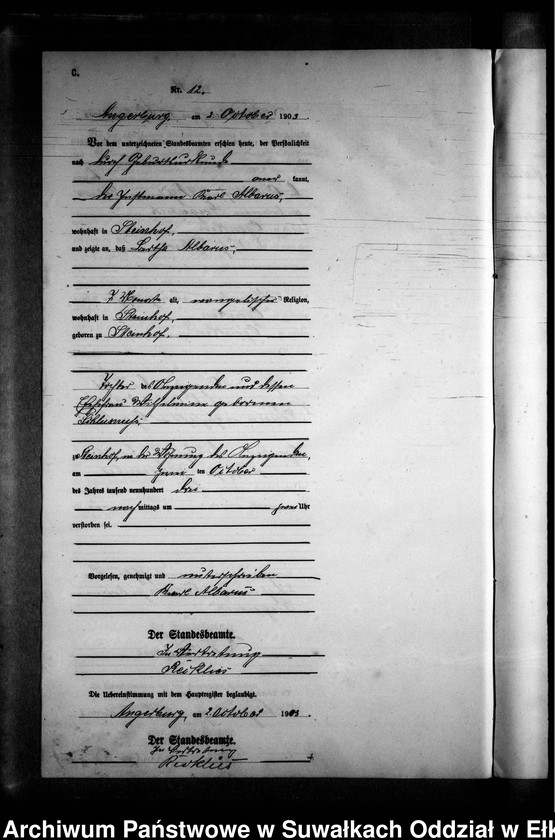 C.
Nr. 12.
Angerburg am 2 October 1903
Vor dem unterzeichneten Standesbeamten erschien heute, der Persönlichkeit
nach durch Geburtsurkunde
aner kannt,
der Instmann Karl Albarus,
wohnhaft in Steinhof,
und zeigte an, daß Albarus,
7 Monate alt, evangelischer Religion,
wohnhaft in Steinhof,
geboren zu Steinhof,
Tochter des Anzeigenden und dessen
Ehefrau Wilhelmine geborenen
zu Steinhof, in der Wohnung des Anzeigenden,
am ten October
des Jahres tausend neunhundert drei
nach mittags um Uhr
verstorben sei.
Vorgelesen, genehmigt und unterschrieben
Karl Albarus
Der Standesbeamte.
In Vertretung
Der Uebereinstimmung mit dem Hauptregister beglaubigt.
Angerburg, am 2 October 1903
Der Standesbeamte.
In Vertretung
Archiwum Państwowe w Suwałkach Oddział w Ełk